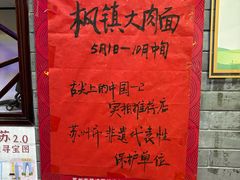 枫镇大肉面
5月1日—10月中旬
舌尖上的中国—2
实拍推荐店
苏州市非遗代表性
保护单位
苏2.0
寻宝图